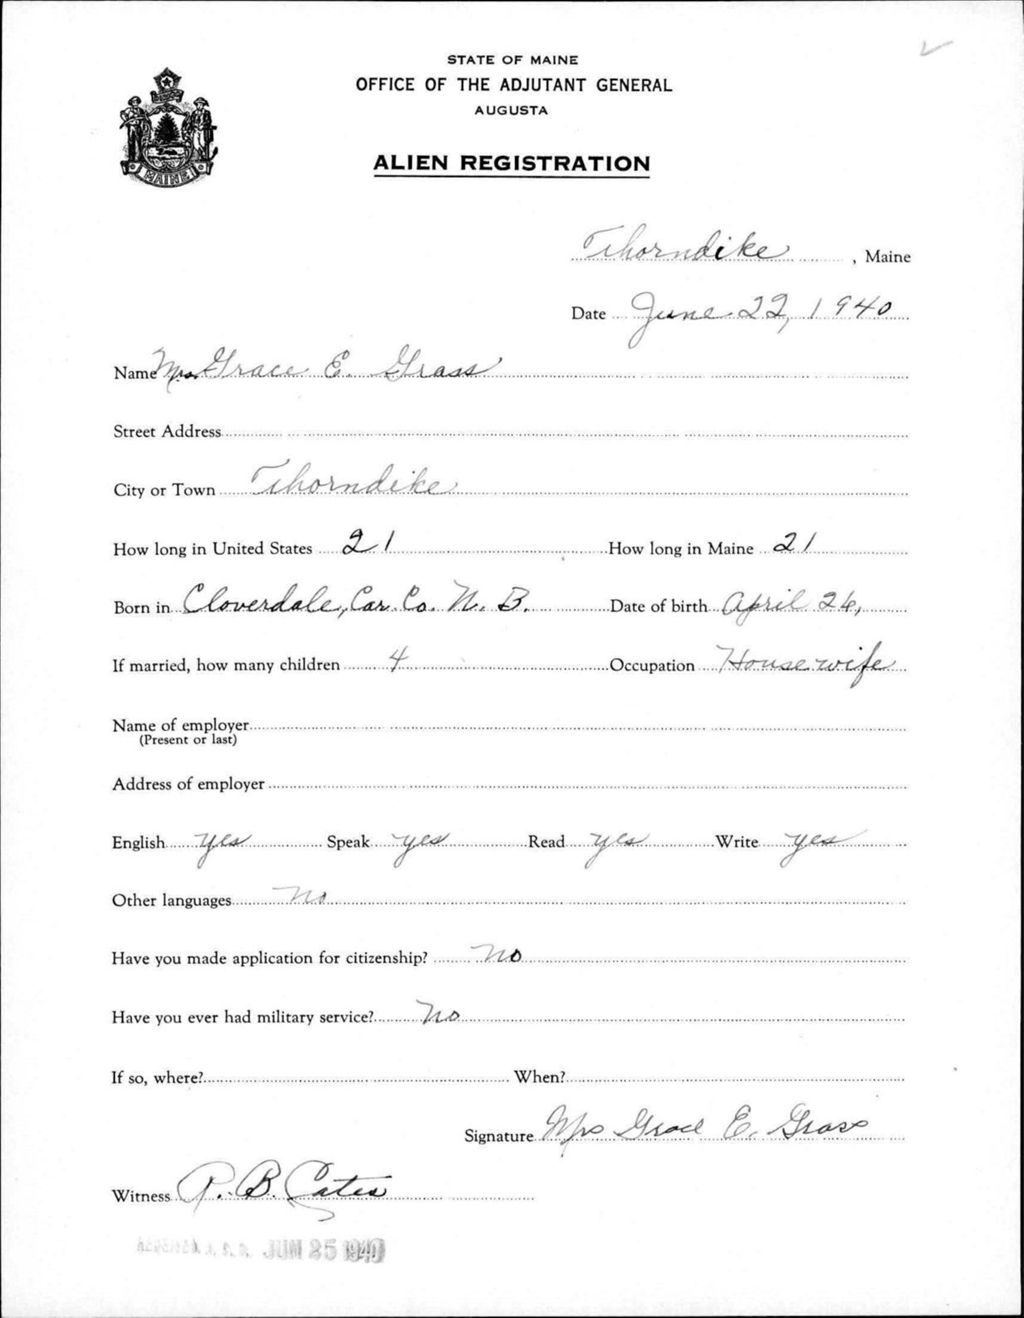 STATE OF MAINE
OFFICE OF THE ADJUTANT GENERAL
AUGUSTA
ALIEN REGISTRATION
MAINE
Thorndike, Maine
Date June 22, 1940
Name Mrs. Grace E. Grass
Street Address
City or Town Thorndike
How long in United States 21 How long in Maine 21
Born in Cloverdale, Car. Co. N. B. Date of birth April 26,
If married, how many children 4 Occupation Housewife
Name of employer
(Present or last)
Address of employer
English yes Speak yes Read yes Write yes
Other languages no
Have you made application for citizenship? no
Have you ever had military service? no
If so, where? When?
Signature Mrs Grace E. Grass
Witness R. B. Cates
JUN 25 1940